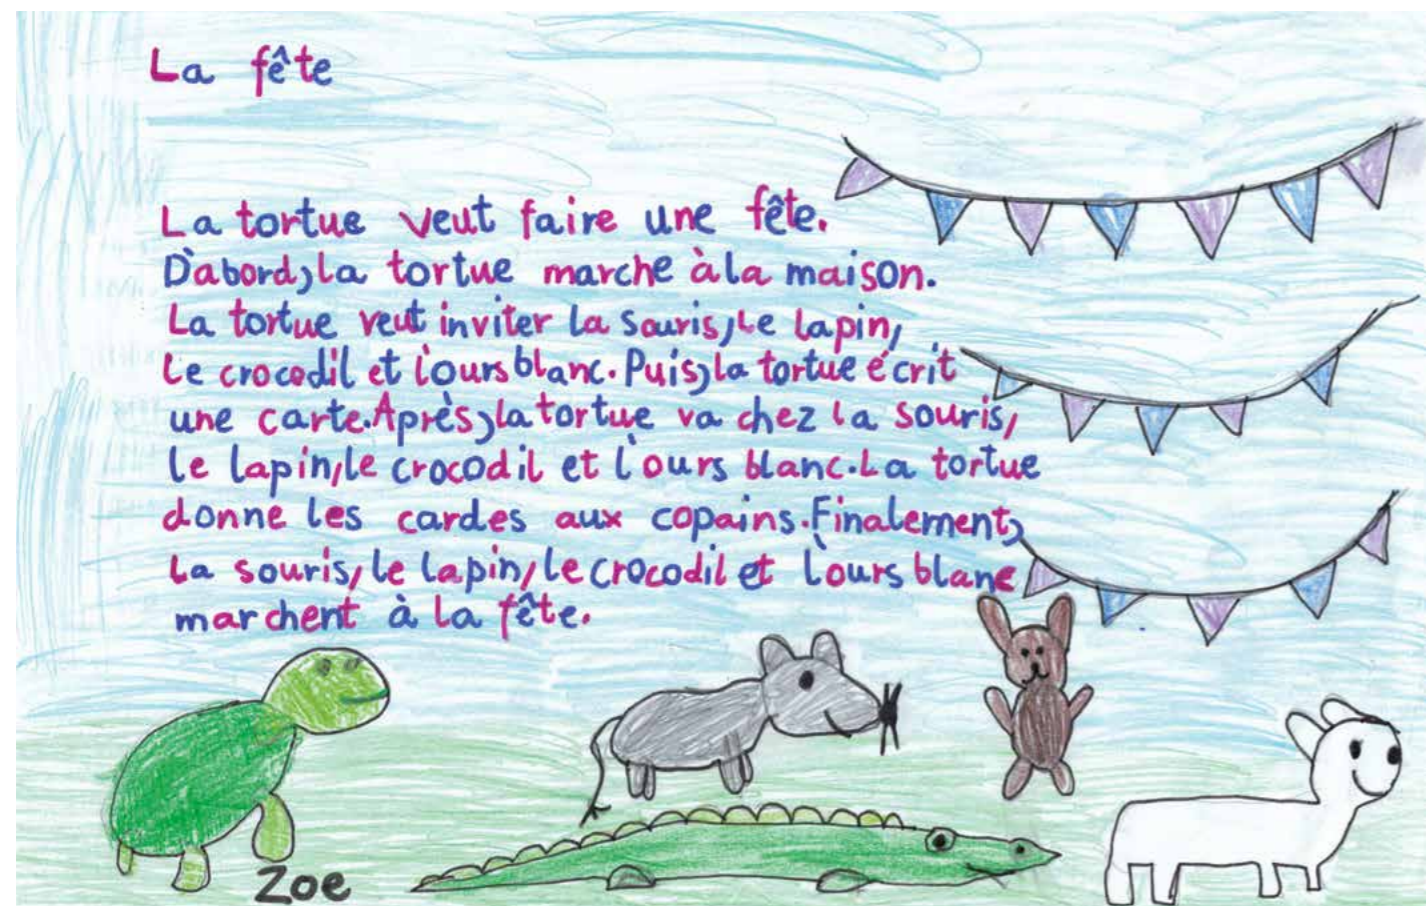 La fête
La tortue veut faire une fête.
D'abord, la tortue marche à la maison.
La tortue veut inviter la souris, le lapin,
le crocodil et l'ours blanc. Puis, la tortue écrit
une carte. Après, la tortue va chez la souris,
le lapin, le crocodil et l'ours blanc. La tortue
donne les cardes aux copains. Finalement,
la souris, le lapin, le crocodil et l'ours blanc
marchent à la fête.
Zoe